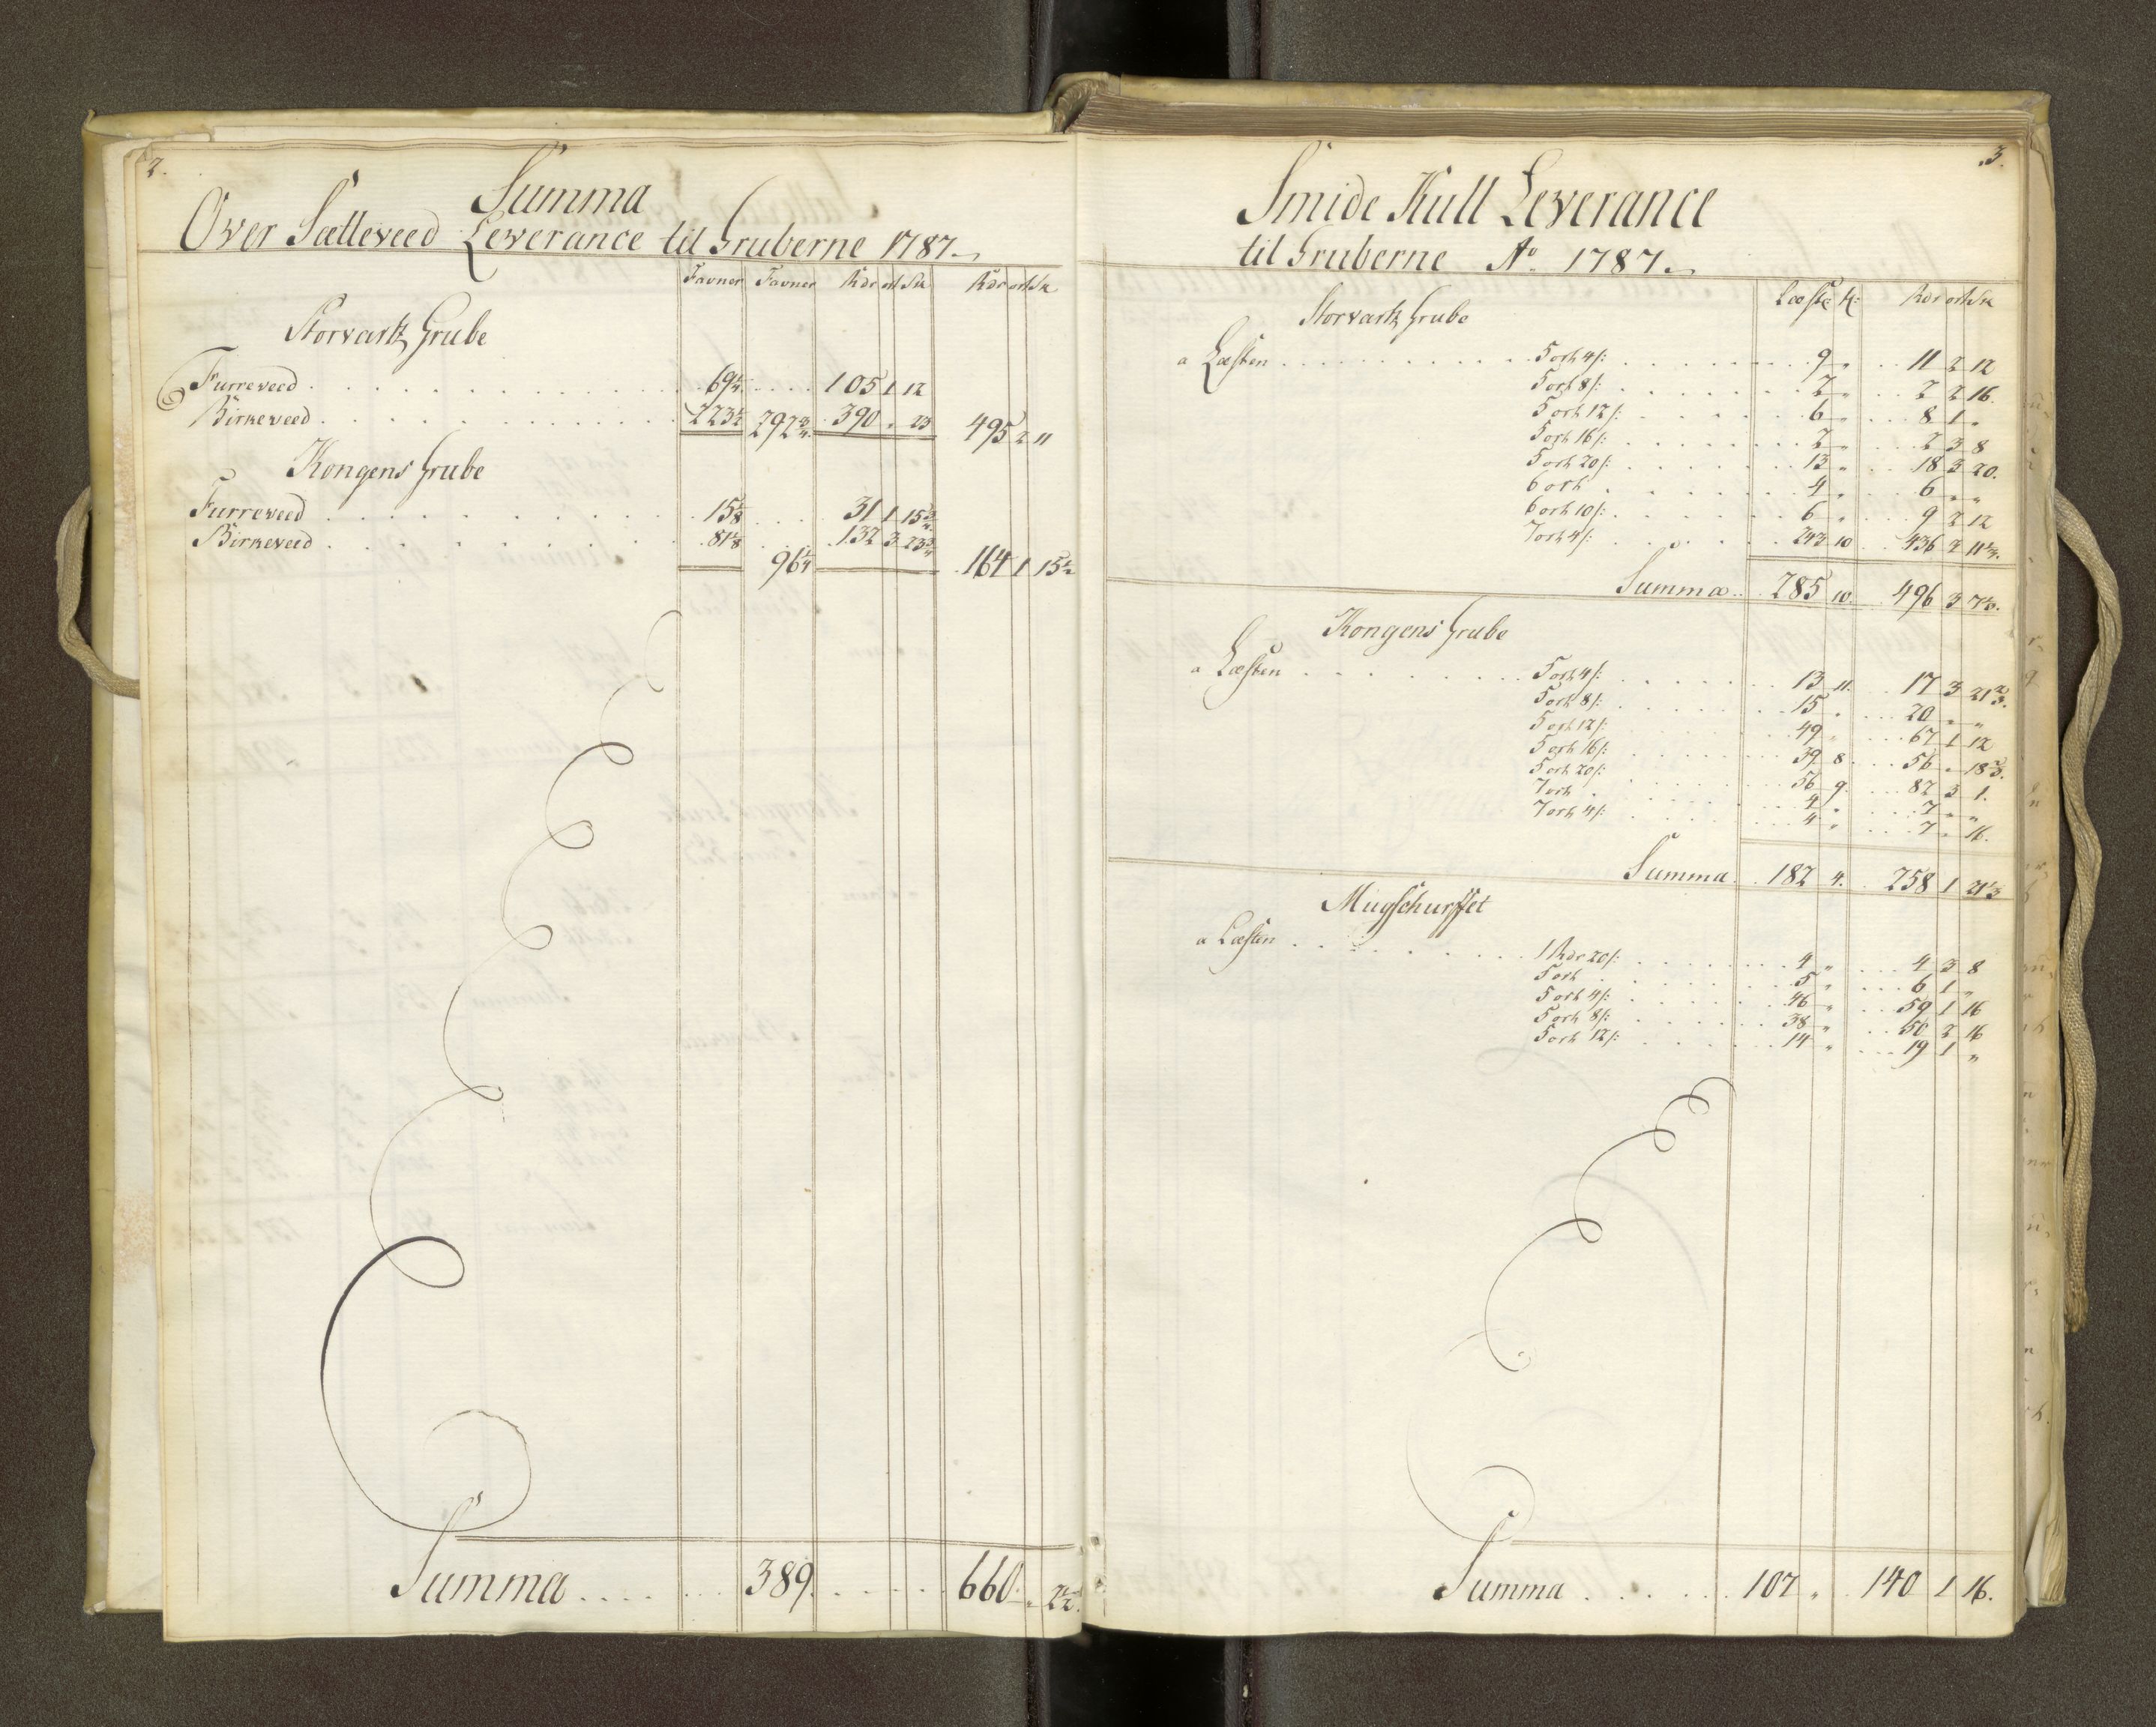 2.
Summa
Over Sætteveed Leverance til Gruberne 1787.
Favner Favner Rdr ort Sk Rdr ort Sk
Storvartz Grube
Furreveed 69¼ 105 1 12
Birkeveed 223½ 292¾ 390 „ 23 495 2 11
Kongens Grube
Furreveed 15⅛ 31 1 15¾
Birkeveed 81⅛ 132 3 23¾
96¼ 164 1 15½
Summa 389 660 „ 2½
3.
Smide Kull Leverance
til Gruberne Ao. 1787.
Læster t: Rdr ort Sk
Storvartz Grube
a Læsten 5 ort 4 s: 9 „ 11 2 12
5 ort 8 s: 2 „ 2 2 16
5 ort 12 s: 6 „ 8 1 „
5 ort 16 s: 2 „ 2 3 8
5 ort 20 s: 13 „ 18 3 20
6 ort 4 „ 6 „ „
6 ort 10 s: 6 „ 9 2 12
7 ort 4 s: 243 10 436 2 11⅓
Summa 285 10 496 3 7⅓
Kongens Grube
a Læsten 5 ort 4 s: 13 11 17 3 21⅔
5 ort 8 s: 15 „ 20 „ „
5 ort 12 s: 49 „ 67 1 12
5 ort 16 s: 39 8 56 „ 18⅔
5 ort 20 s: 56 9 82 3 1
7 ort 4 „ 7 „ „
7 ort 4 s: 4 „ 7 „ 16
Summa 182 4 258 1 21⅓
Mugschurffet
a Læsten 1 Rdr 20 s: 4 „ 4 3 8
5 ort 5 „ 6 1 „
5 ort 4 s: 46 „ 59 1 16
5 ort 8 s: 38 „ 50 2 16
5 ort 12 s: 14 „ 19 1 „
Summa 107 „ 140 1 16